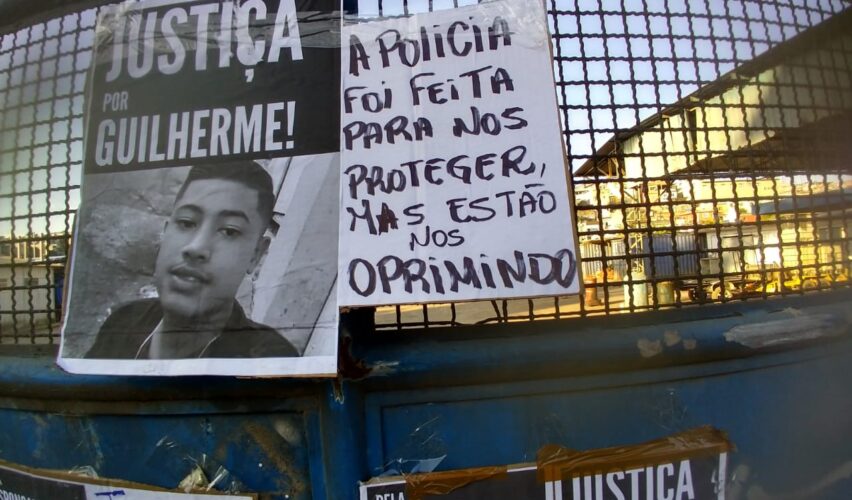 JUSTIÇA
POR
GUILHERME!
A POLICIA
FOI FEITA
PARA NOS
PROTEGER,
MAS ESTÃO
NOS
OPRIMINDO
PELA
JUSTIÇA